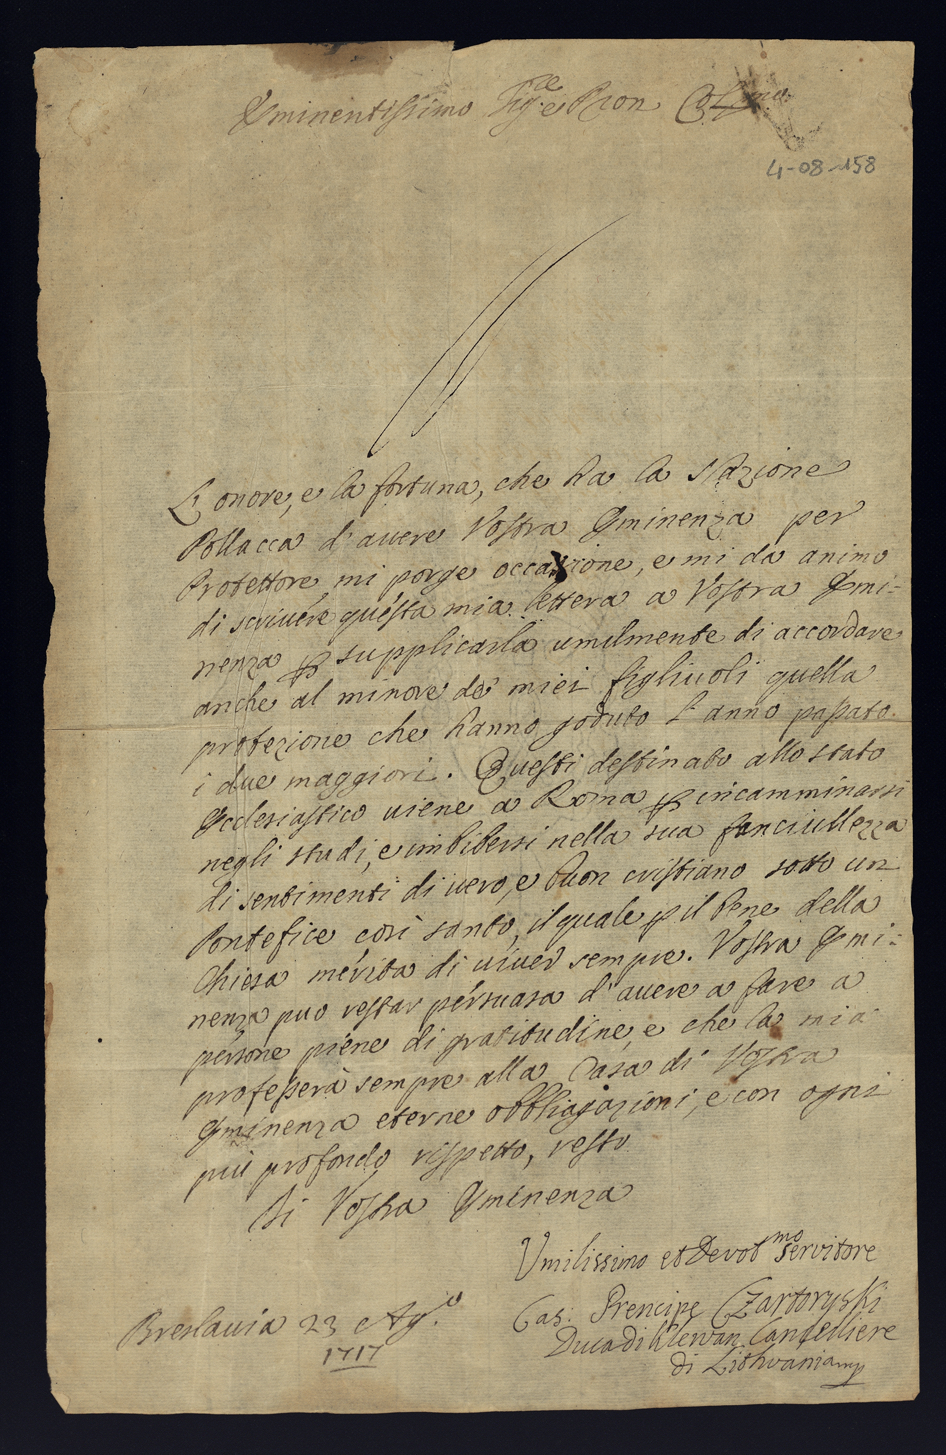 Eminentissimo Sig.re e Pron Col.mo
4-08-158
L'onore, e la fortuna, che ha la Nazione
Pollacca d'avere Vostra Eminenza per
Protettore, mi porge occasione, e mi da animo
di scrivere questa mia lettera a Vostra Emi-
nenza p supplicarla umilmente di accordare
anche al minore de' miei figliuoli quella
protezione che hanno goduto l'anno passato
i due maggiori. Questi destinato allo stato
Ecclesiastico viene a Roma p incamminarsi
negli studi, e imbibersi nella sua fanciullezza
di sentimenti di vero, e buon cristiano sotto un
Pontefice così santo, il quale p il bene della
Chiesa mérita di viver sempre. Vostra Emi-
nenza puo restar pérsuasa d'avere a fare a
pérsone piene di gratitudine, e che la mia
professerà sempre alla Casa di Vostra
Eminenza eterne obbliagazioni, e con ogni
più profondo rispetto, resto
Di Vostra Eminenza
Umilissimo et Devot.mo servitore
Cas: Prencipe Czartoryski
Duca di Klewan Cancelliere
di Lithvania mp
Breslavia 23 Ag.o
1717